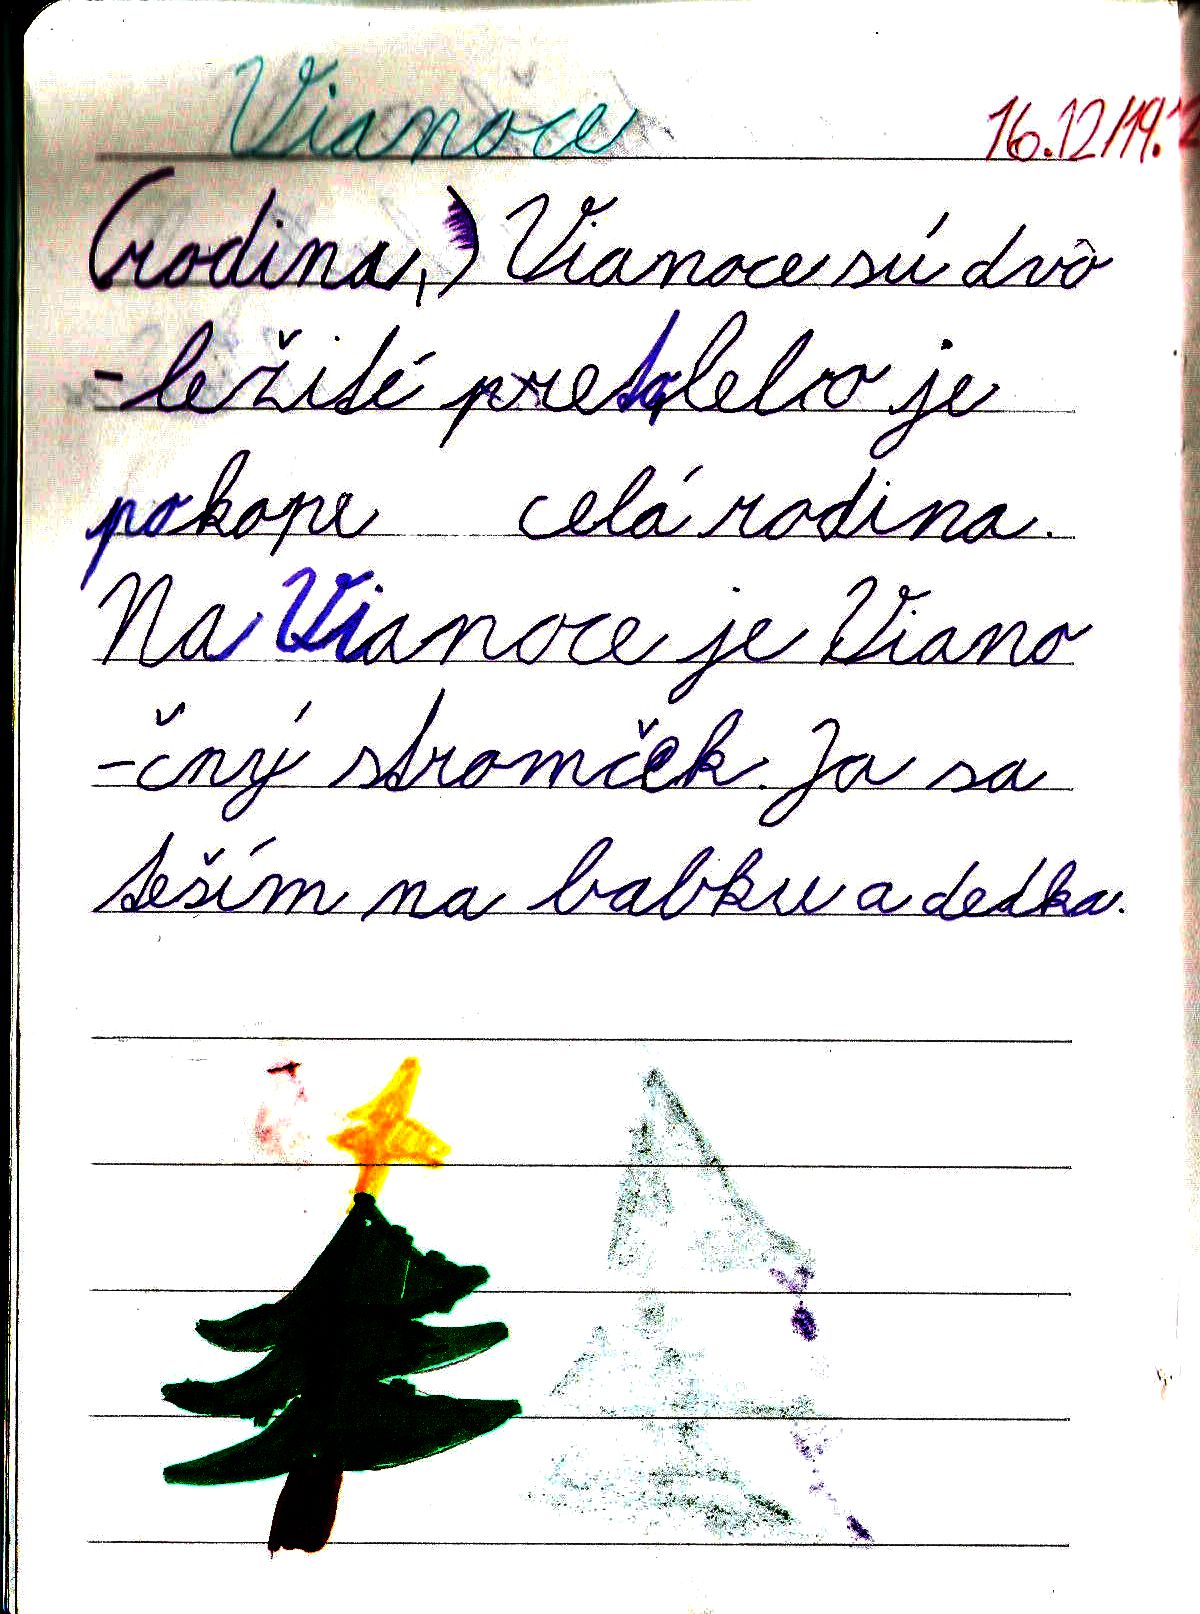 Vianoce 16.12/19.
(rodina,) Vianoce sú dvô
-ležité pretolebo je
pokope celá rodina.
Na Vianoce je Viano
-čný stromček. Ja sa
teším na babku a dedka.